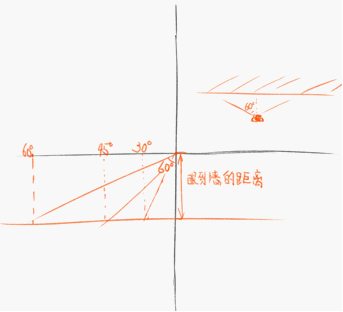 60°
60° 45° 30°
60°
眼到墙的距离